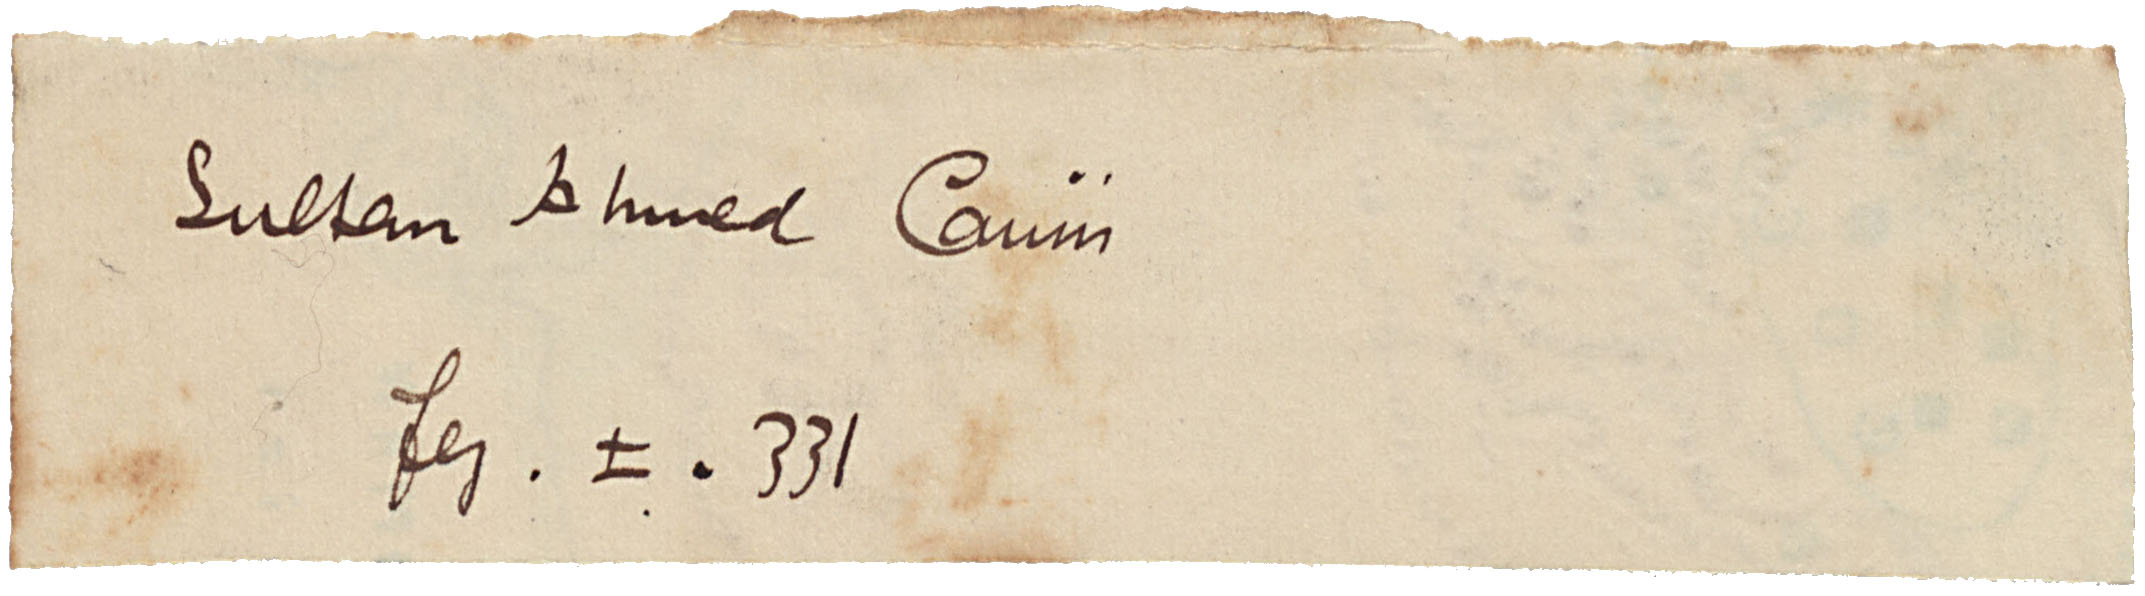 Sultan Ahmed Camii
feş. I. 331